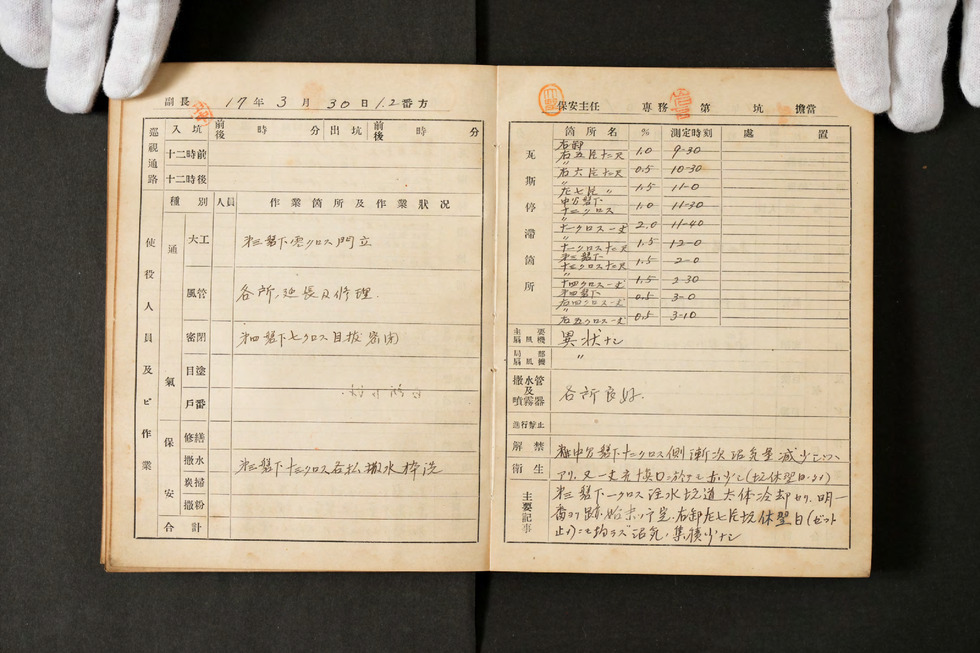 副長 17年3月30日1.2番方
巡視通路 入坑 前後 時 分 出坑 前後 時 分
十二時前
十二時後
種別 人員 作業箇所及作業状況
使役人員及ビ作業
通氣
大工 第三盤下零クロス門立
風管 各所、延長及修理
密閉 第四盤下七クロス目抜密閉
目塗
戸番
保安
修繕
撒水 第三盤下十三クロス右払撒水枠洗
炭掃
撒粉
合計
保安主任 専務 第 坑 擔當
瓦斯停滞箇所
箇所名 % 測定時刻 處置
右卸
右五片十二尺 1.0 9-30
〃
右六片十二尺 0.5 10-30
〃
左七片 〃 1.5 11-0
中方盤下
十二クロス 1.0 11-30
〃
十一クロス一丈 2.0 11-40
〃
十一クロス十二尺 1.5 12-0
第三盤下
十三クロス十二尺 1.5 2-0
〃
十四クロス一丈 1.5 2-30
第四盤下
右四クロス一丈 0.5 3-0
〃
右五クロス一丈 0.5 3-10
主要扇風機 異状ナシ
局部扇風機 〃
撒水管及噴霧器 各所良好.
進行禁止
解禁
衛生
中方盤下十二クロス側漸次沼気量減少シツヽ
アリ、又一丈
主要記事
第三盤下一クロス注水坑道大体冷却セリ、明一
番ヨリ跡始末ノ予定、右卸左七片坑休翌日(
止)ニモ拘ラズ沼気ノ集積少ナシ